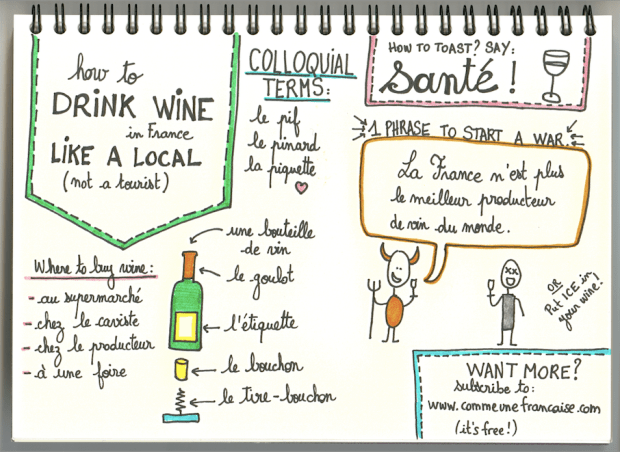 how to
DRINK WINE
in France
LIKE A LOCAL
(not a tourist)
COLLOQUIAL
TERMS:
le pif
le pinard
la piquette
HOW TO TOAST? SAY:
Santé !
1 PHRASE TO START A WAR:
La France n'est plus
le meilleur producteur
de vin du monde.
OR
Put ICE in
your wine!
Where to buy wine:
- au supermarché
- chez le caviste
- chez le producteur
- à une foire
une bouteille
de vin
le goulot
l'étiquette
le bouchon
le tire-bouchon
WANT MORE?
subscribe to:
www.commeunefrancaise.com
(it's free!)